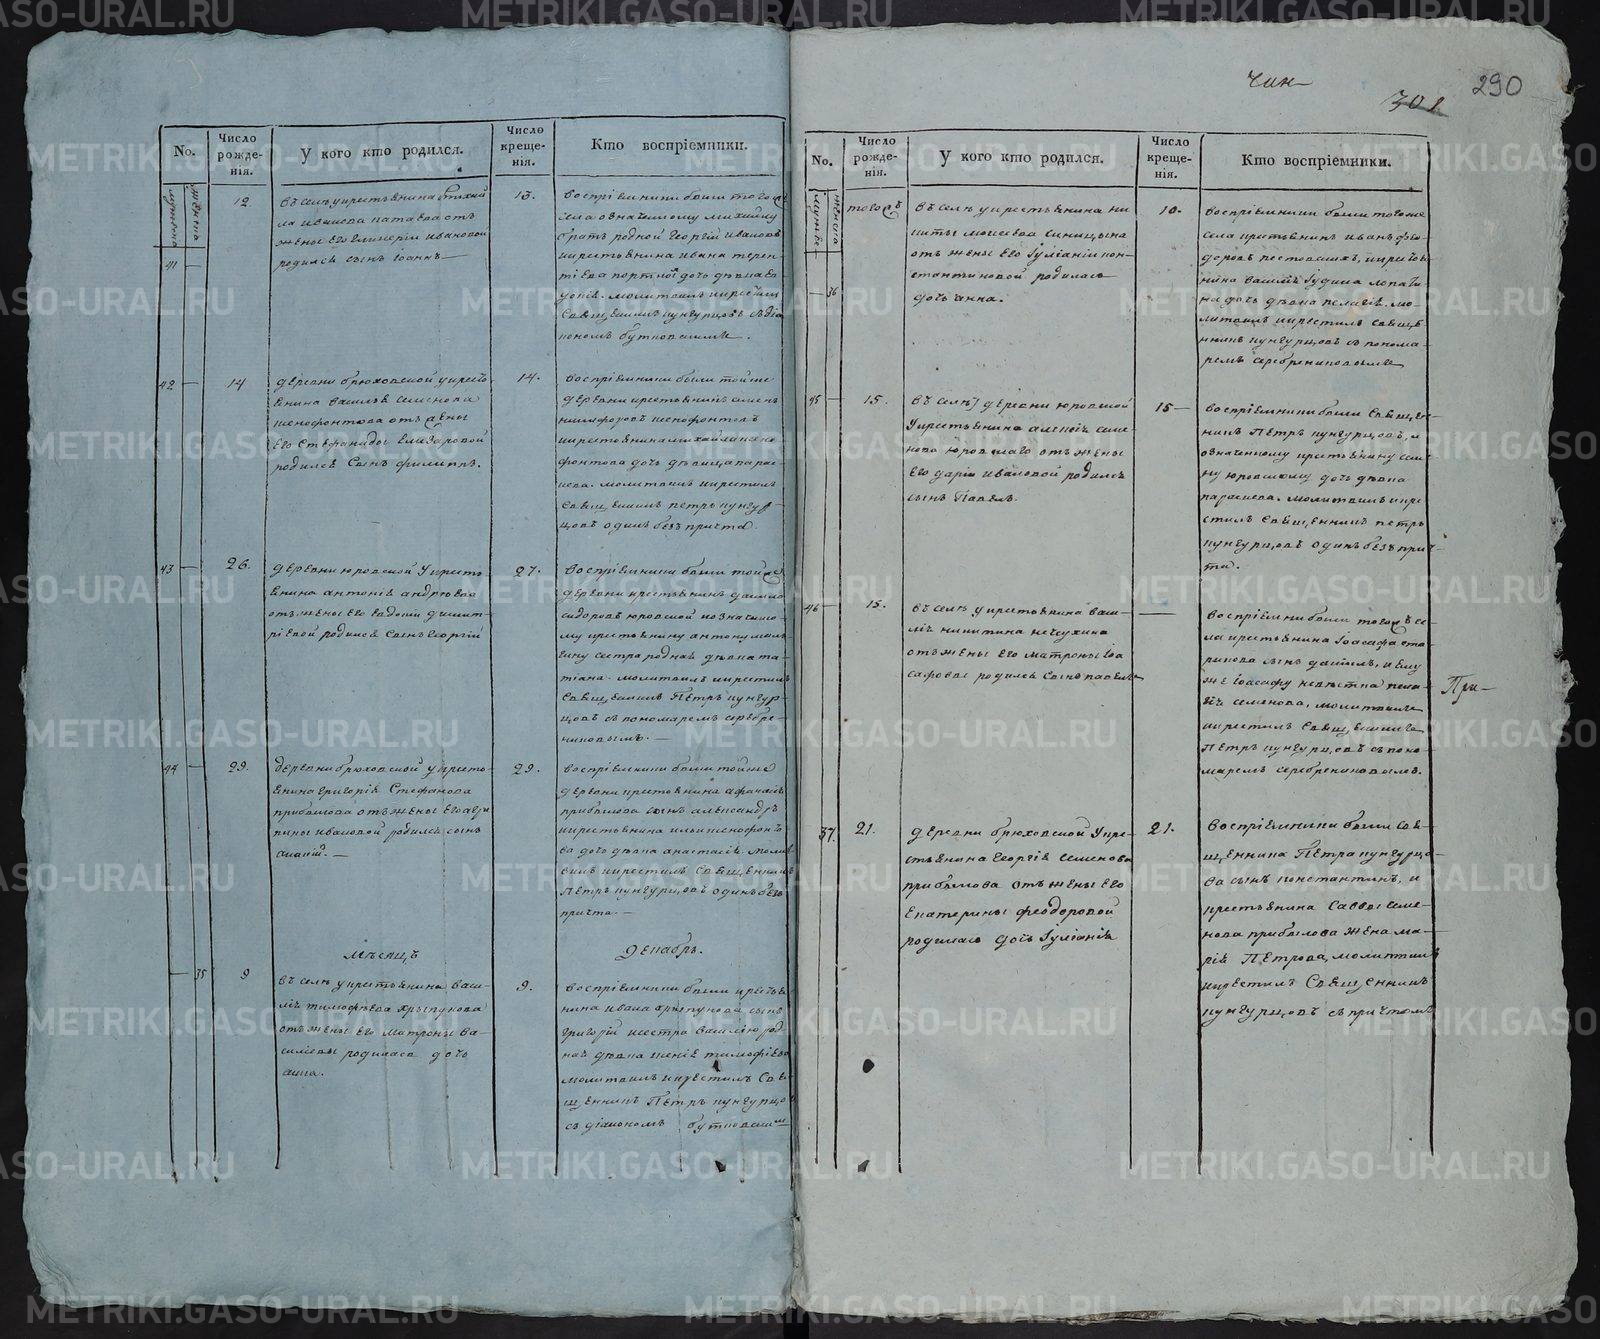 No.
Число рожде-нія.
У кого кто родился.
Число креще-нія.
Кто воспріемники.
41
12
ла Иванова
жены его Гликеріи Ивановой
родился сынъ Іоаннъ
13.
воспріемники были того
села означенному Михайлу
братъ родной Георгій Ивановъ
крестьянина Ивана Терен-
тіева дочь девка Ев-
докія. молитвилъ и крестилъ
священникъ Кунгурцовъ съ діа-
кономъ
42
14
деревни Брюховской у кресть-
янина Василья Семенова
Ксенофонтова отъ жены
его Стефаниды Елизаровой
родился сынъ Филиппъ.
14.
воспріемники были той же
деревни крестьянинъ Семенъ
Никифоровъ Ксенофонтовъ
крестьянина Михайла Ксено-
фонтова дочь девица Парас-
кева. молитвилъ и крестилъ
священникъ Петръ Кунгур-
цовъ одинъ безъ причта
43
26.
деревни Юровской у кресть-
янина Антонія Андреева
отъ жены его Евдокіи Димит-
ріевой родился сынъ Георгій
27.
воспріемники были той же
деревни крестьянинъ
Сидоровъ Юровской
му крестьянину Антону
сестра родная девка Та-
тіана. молитвилъ и крестилъ
священникъ Петръ Кунгур-
цовъ съ пономаремъ Серебре-
никовымъ.
44
29.
деревни Брюховской у кресть-
янина Григорія Стефанова
Прибылова отъ жены его Агри-
пины Ивановой родился сынъ
29.
воспріемники были той же
деревни крестьянина Афанасія
Прибылова сынъ Александръ
крестьянина Ильи Ксенофонто-
ва дочь девка Анастасія. молит-
вилъ и крестилъ священникъ
Петръ Кунгурцовъ одинъ безъ
причта.
месяцъ
Декабрь.
35
9
въ селе у крестьянина Васи-
лія Тимофеева Хрыпунова
отъ жены его Матроны Ва-
сильевы родилася дочь
Анна.
9.
воспріемники были крестья-
нина Ивана Хрыпунова сынъ
Григорій и сестра Василію род-
ная девка Тимофеева
молитвилъ и крестилъ свя-
щенникъ Петръ Кунгурцовъ
съ діакономъ
290
301
No.
Число рожде-нія.
У кого кто родился.
Число креще-нія.
Кто воспріемники.
36
въ селе у крестьянина Ни-
киты Моисеева Синицына
отъ жены его Іуліаніи Кон-
стантиновой родилася
дочь Анна.
10.
воспріемники были того же
села крестьянинъ Иванъ Фео-
доровъ
нина Василья Іудина Лопати-
на дочь девка Пелагія. мо-
литвилъ и крестилъ священ-
никъ Кунгурцовъ съ понома-
ремъ Серебрениковымъ
45
15.
деревни Юровской
у крестьянина Алексія Семе-
нова Юровскаго отъ жены
его Даріи Ивановой родился
сынъ Павелъ.
15
воспріемники были священ-
никъ Петръ Кунгурцовъ, и
означенному крестьянину
Юровскому дочь девка
Параскева. молитвилъ и кре-
стилъ священникъ Петръ
Кунгурцовъ одинъ безъ прич-
та.
46
15.
въ селе у крестьянина Васи-
лія Никитина
отъ жены его Матроны Іоа-
сафовы родился сынъ Павелъ
воспріемники были того же се-
ла крестьянина Іоасафа Ста-
рикова сынъ Даніилъ, и ему
же Іоасафу невестка Пела-
гія Семенова, молитвилъ
и крестилъ священникъ
Петръ Кунгурцовъ съ поно-
маремъ Серебрениковымъ.
При-
37.
21.
деревни Брюховской у кре-
стьянина Георгія Семенова
Прибылова отъ жены его
Екатерины Феодоровой
родилася дочь Іуліанія
21.
воспріемники были свя-
щенника Петра Кунгурцо-
ва сынъ Константинъ, и
крестьянина Саввы Семе-
нова Прибылова жена Ма-
рія Петрова, молитвилъ
и крестилъ священникъ
Кунгурцовъ съ причтомъ
METRIKI.GASO-URAL.RU